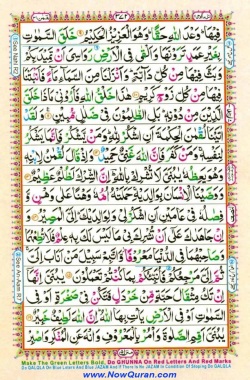 ٣٧٢
فِيْهَا وَعْدَ اللّٰهِ حَقًّا وَهُوَ الْعَزِيْزُ الْحَكِيْمُ خَلَقَ السَّمٰوٰتِ
بِغَيْرِ عَمَدٍ تَرَوْنَهَا وَاَلْقٰى فِى الْاَرْضِ رَوَاسِىَ اَنْ تَمِيْدَ بِكُمْ
وَبَثَّ فِيْهَا مِنْ كُلِّ دَآبَّةٍ وَاَنْزَلْنَا مِنَ السَّمَآءِ مَآءً فَاَنْۢبَتْنَا
فِيْهَا مِنْ كُلِّ زَوْجٍ كَرِيْمٍ هٰذَا خَلْقُ اللّٰهِ فَاَرُوْنِىْ مَاذَا خَلَقَ
الَّذِيْنَ مِنْ دُوْنِهٖ بَلِ الظّٰلِمُوْنَ فِىْ ضَلٰلٍ مُّبِيْنٍ وَلَقَدْ
اٰتَيْنَا لُقْمٰنَ الْحِكْمَةَ اَنِ اشْكُرْ لِلّٰهِ وَمَنْ يَّشْكُرْ فَاِنَّمَا يَشْكُرُ
لِنَفْسِهٖ وَمَنْ كَفَرَ فَاِنَّ اللّٰهَ غَنِىٌّ حَمِيْدٌ وَاِذْ قَالَ لُقْمٰنُ لِابْنِهٖ
وَهُوَ يَعِظُهٗ يٰبُنَىَّ لَا تُشْرِكْ بِاللّٰهِ اِنَّ الشِّرْكَ لَظُلْمٌ عَظِيْمٌ
وَوَصَّيْنَا الْاِنْسَانَ بِوَالِدَيْهِ حَمَلَتْهُ اُمُّهٗ وَهْنًا عَلٰى وَهْنٍ وَّ
فِصٰلُهٗ فِىْ عَامَيْنِ اَنِ اشْكُرْ لِىْ وَلِوَالِدَيْكَ اِلَىَّ الْمَصِيْرُ وَ
اِنْ جَاهَدٰكَ عَلٰٓى اَنْ تُشْرِكَ بِىْ مَا لَيْسَ لَكَ بِهٖ عِلْمٌ فَلَا تُطِعْهُمَا
وَصَاحِبْهُمَا فِى الدُّنْيَا مَعْرُوْفًا وَّاتَّبِعْ سَبِيْلَ مَنْ اَنَابَ اِلَىَّ
ثُمَّ اِلَىَّ مَرْجِعُكُمْ فَاُنَبِّئُكُمْ بِمَا كُنْتُمْ تَعْمَلُوْنَ يٰبُنَىَّ اِنَّهَآ
اِنْ تَكُ مِثْقَالَ حَبَّةٍ مِّنْ خَرْدَلٍ فَتَكُنْ فِىْ صَخْرَةٍ اَوْ فِى
السَّمٰوٰتِ اَوْ فِى الْاَرْضِ يَاْتِ بِهَا اللّٰهُ اِنَّ اللّٰهَ لَطِيْفٌ خَبِيْرٌ
يٰبُنَىَّ اَقِمِ الصَّلٰوةَ وَاْمُرْ بِالْمَعْرُوْفِ وَانْهَ عَنِ الْمُنْكَرِ وَاصْبِرْ
Make The Green Letters Bold, Do GHUNNA On Red Letters And Red Marks
Do QALQLA On Blue Letters And Blue JAZAM And If There Is No JAZAM In Condition Of Stopping Do QALQLA
www.NowQuran.com